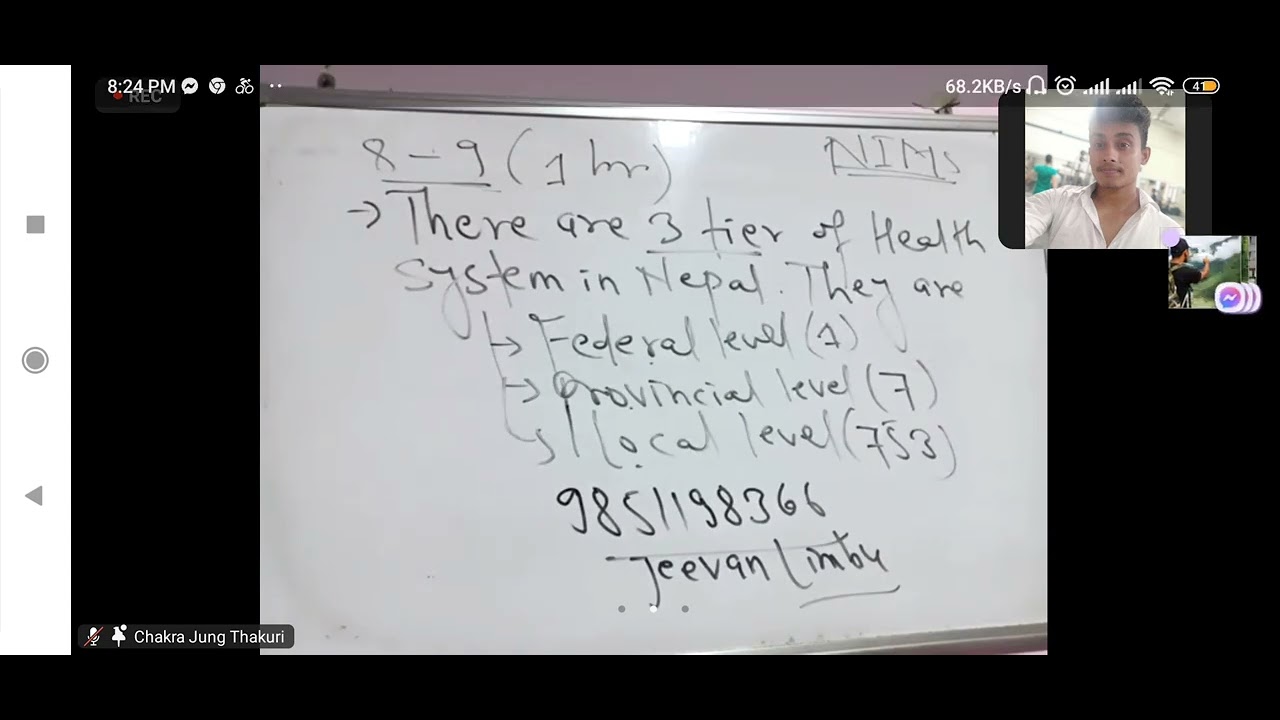 8:24 PM
68.2KB/s
41
REC
8-9 (1 hr)
NIMS
→ There are 3 tier of Health
system in Nepal. They are
→ Federal level (1)
→ Provincial level (7)
→ Local level (753)
9851198366
Jeevan Limbu
Chakra Jung Thakuri